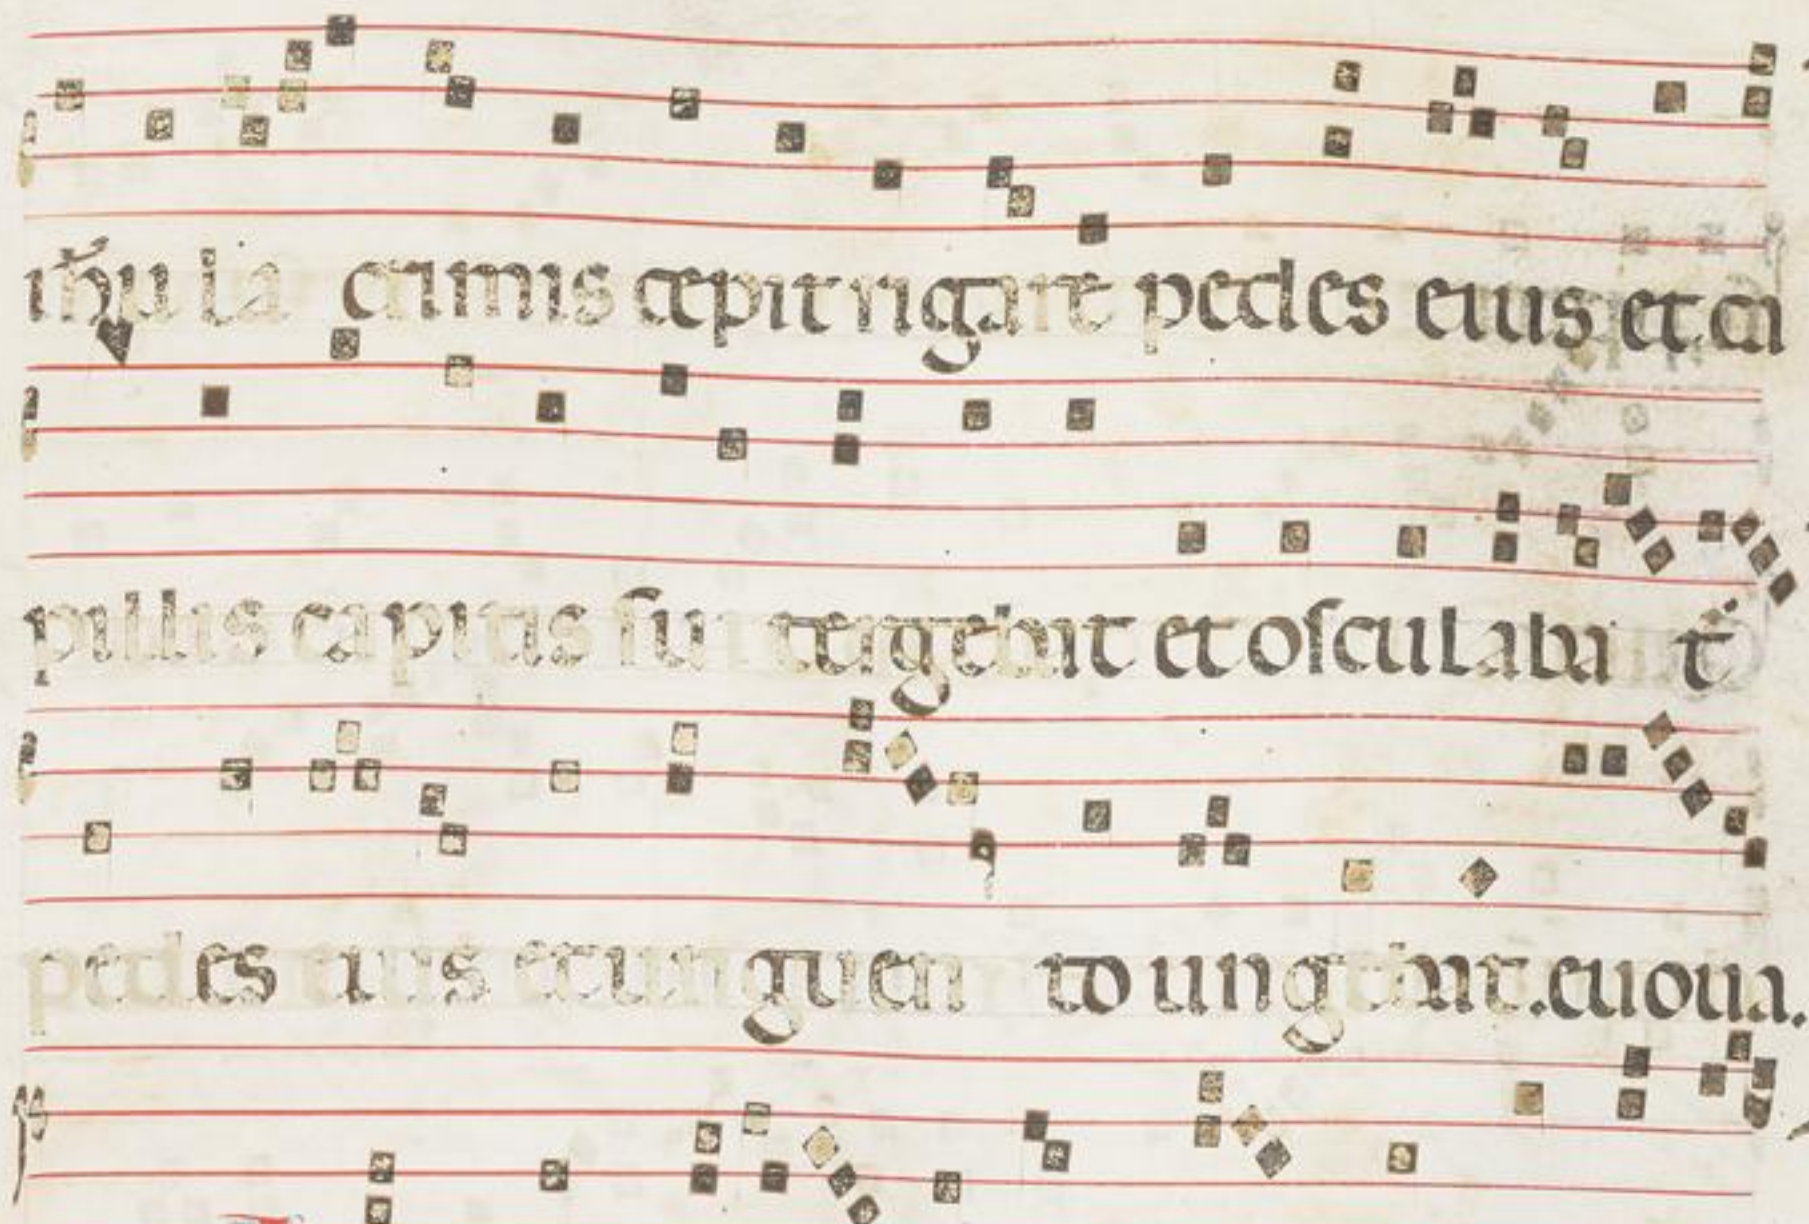 ihu la crimis cepit rigare pedes eius et ca
pillis capitis sui tergebat et osculaba t
pedes eius et unguen to ungebat. euoua.